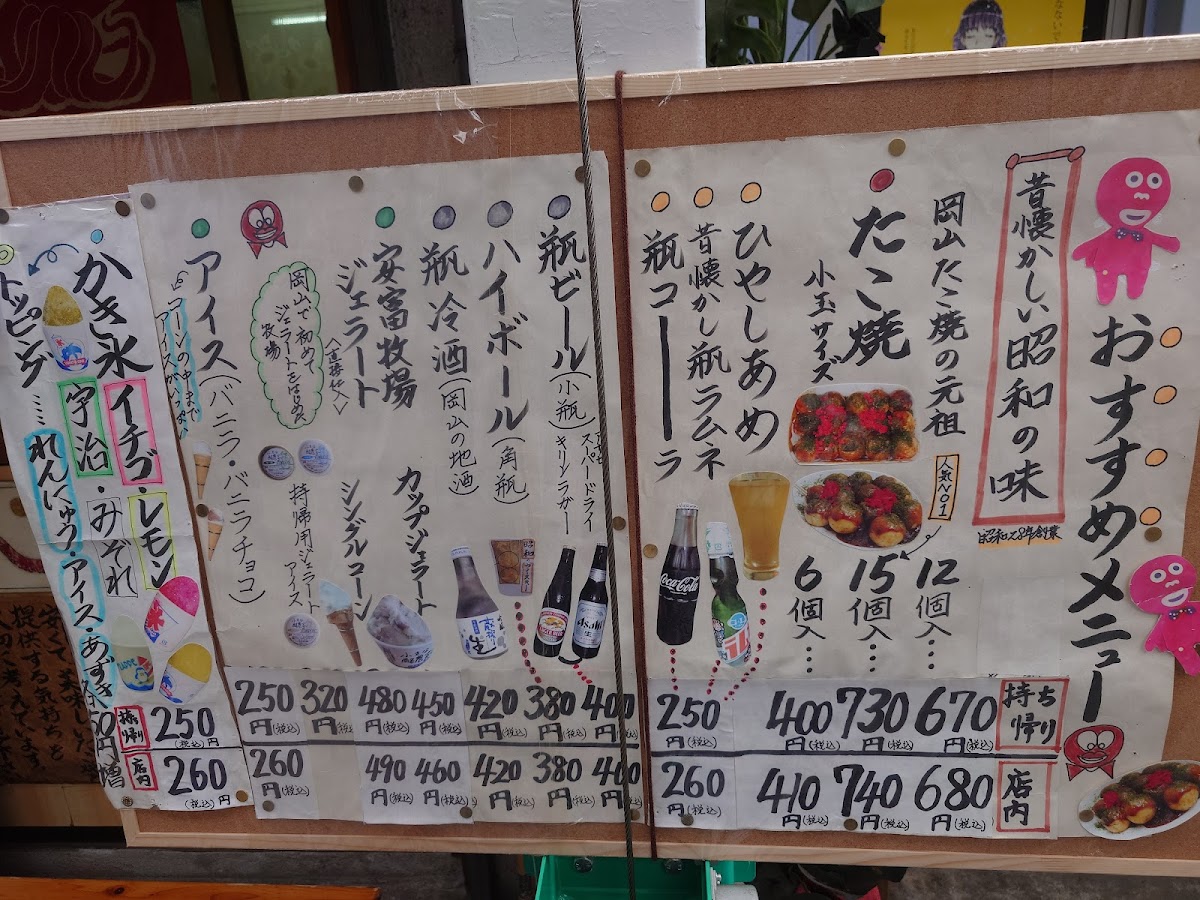 おすすめメニュー
昔懐かしい昭和の味
昭和28年創業
岡山たこ焼の元祖
人気NO1
12個入…
15個入…
6個入…
たこ焼
小玉サイズ
ひやしあめ
昔懐かし瓶ラムネ
瓶コーラ
Coca-Cola
持ち帰り
670円(税込)
730円(税込)
400円(税込)
250円(税込)
店内
680円(税込)
740円(税込)
410円(税込)
260円(税込)
瓶ビール(小瓶)
スーパードライ
キリンラガー
ハイボール(角瓶)
瓶冷酒(岡山の地酒)
安富牧場
ジェラート
カップジェラート
シングルコーン
〈直接仕入〉
岡山で初めて
ジェラートをはじめた
牧場
持帰用ジェラート
アイス
アイス(バニラ・バニラチョコ)
コーンの中まで
アイスがいっぱい
昭和
生
Asahi
生
KIRIN
400円(税込)
380円(税込)
420円(税込)
450円(税込)
480円(税込)
320円(税込)
250円(税込)
400円(税込)
380円(税込)
420円(税込)
460円(税込)
490円(税込)
260円(税込)
かき氷
イチゴ・レモン
宇治・みぞれ
トッピング……れんにゅう・アイス・あずき
50円増
持帰り
250円(税込)
店内
260円(税込)
安くて美味しい
提供する気持ちと